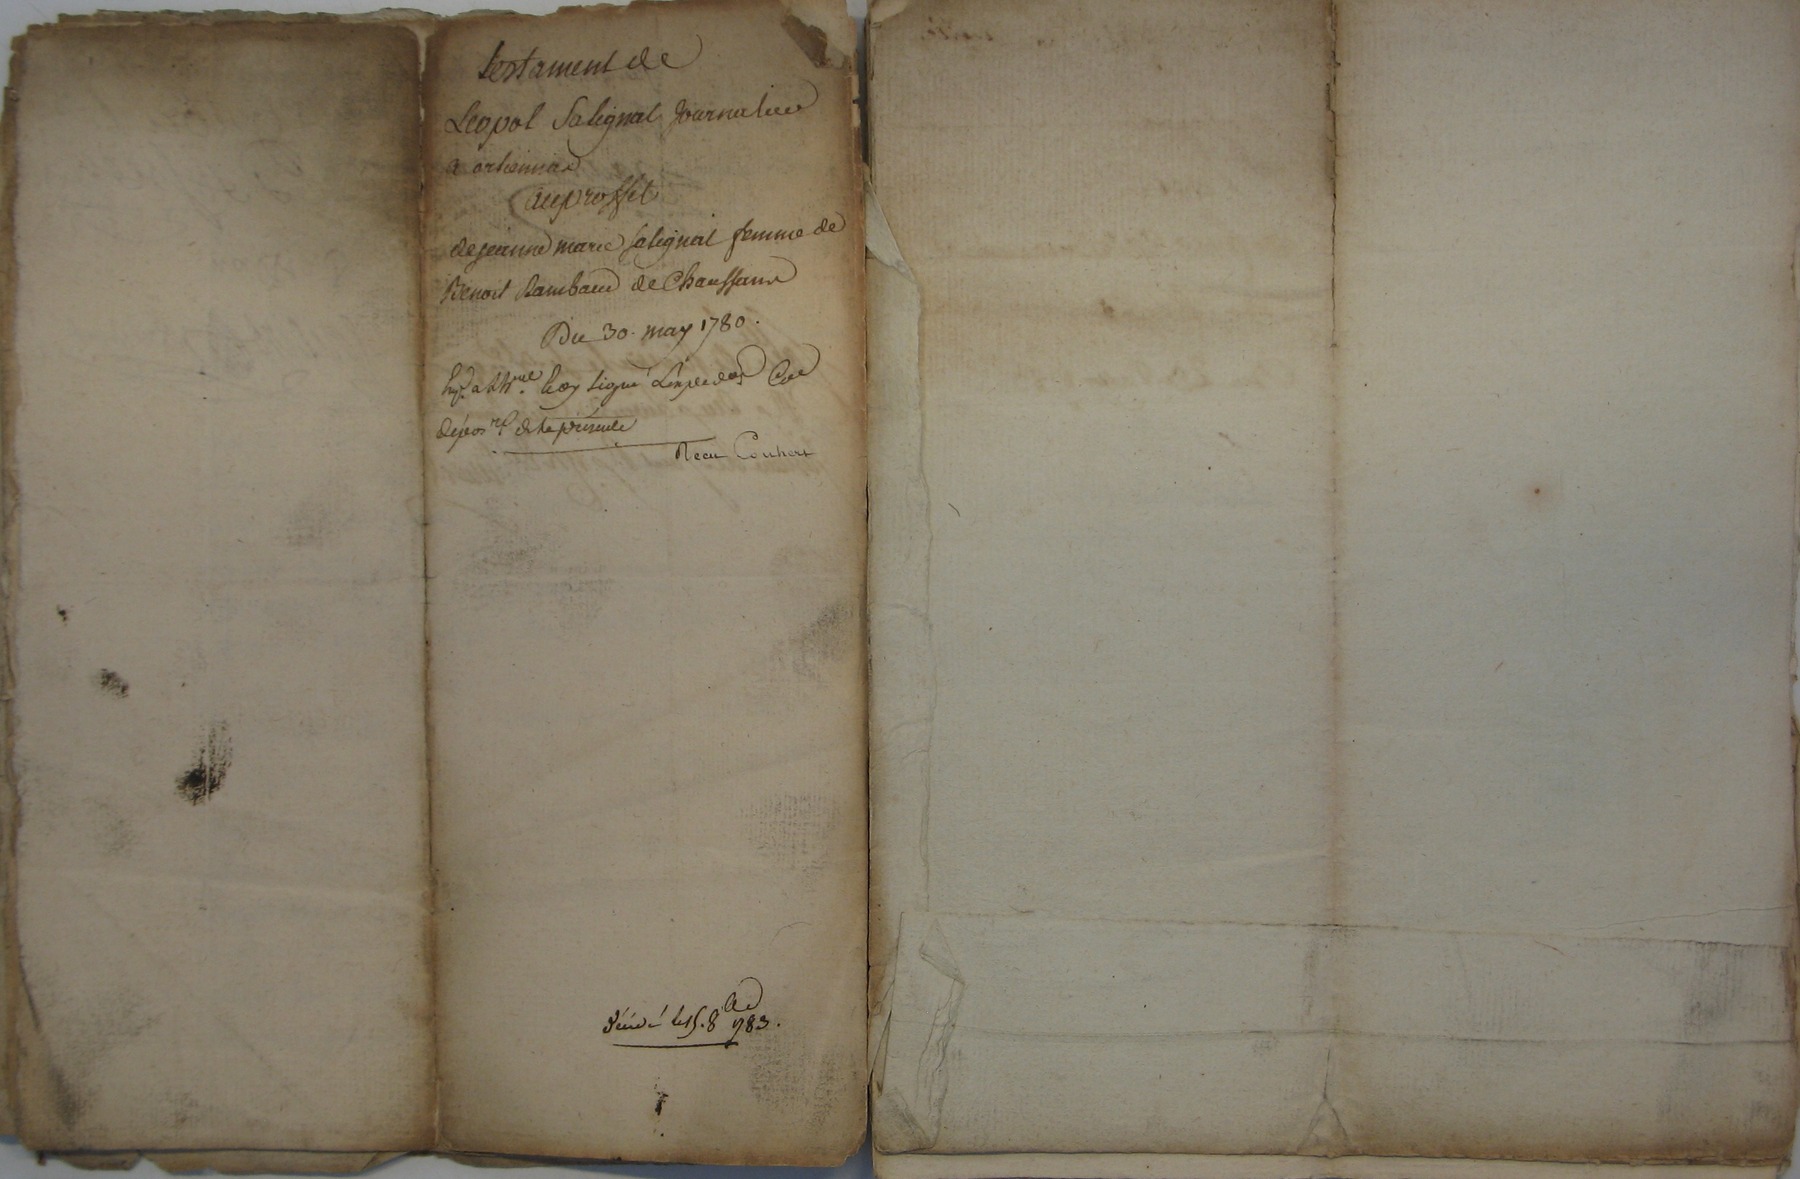 testament de
Leopol Salignat Journalier
a orlienna
au proffit
de jeanne marie Salignat femme de
Benoit Rambaud de Chaussant
Du 30. may 1780.
signé
de la présente
Recu Conhert
décédé le 15. 8bre 1783.